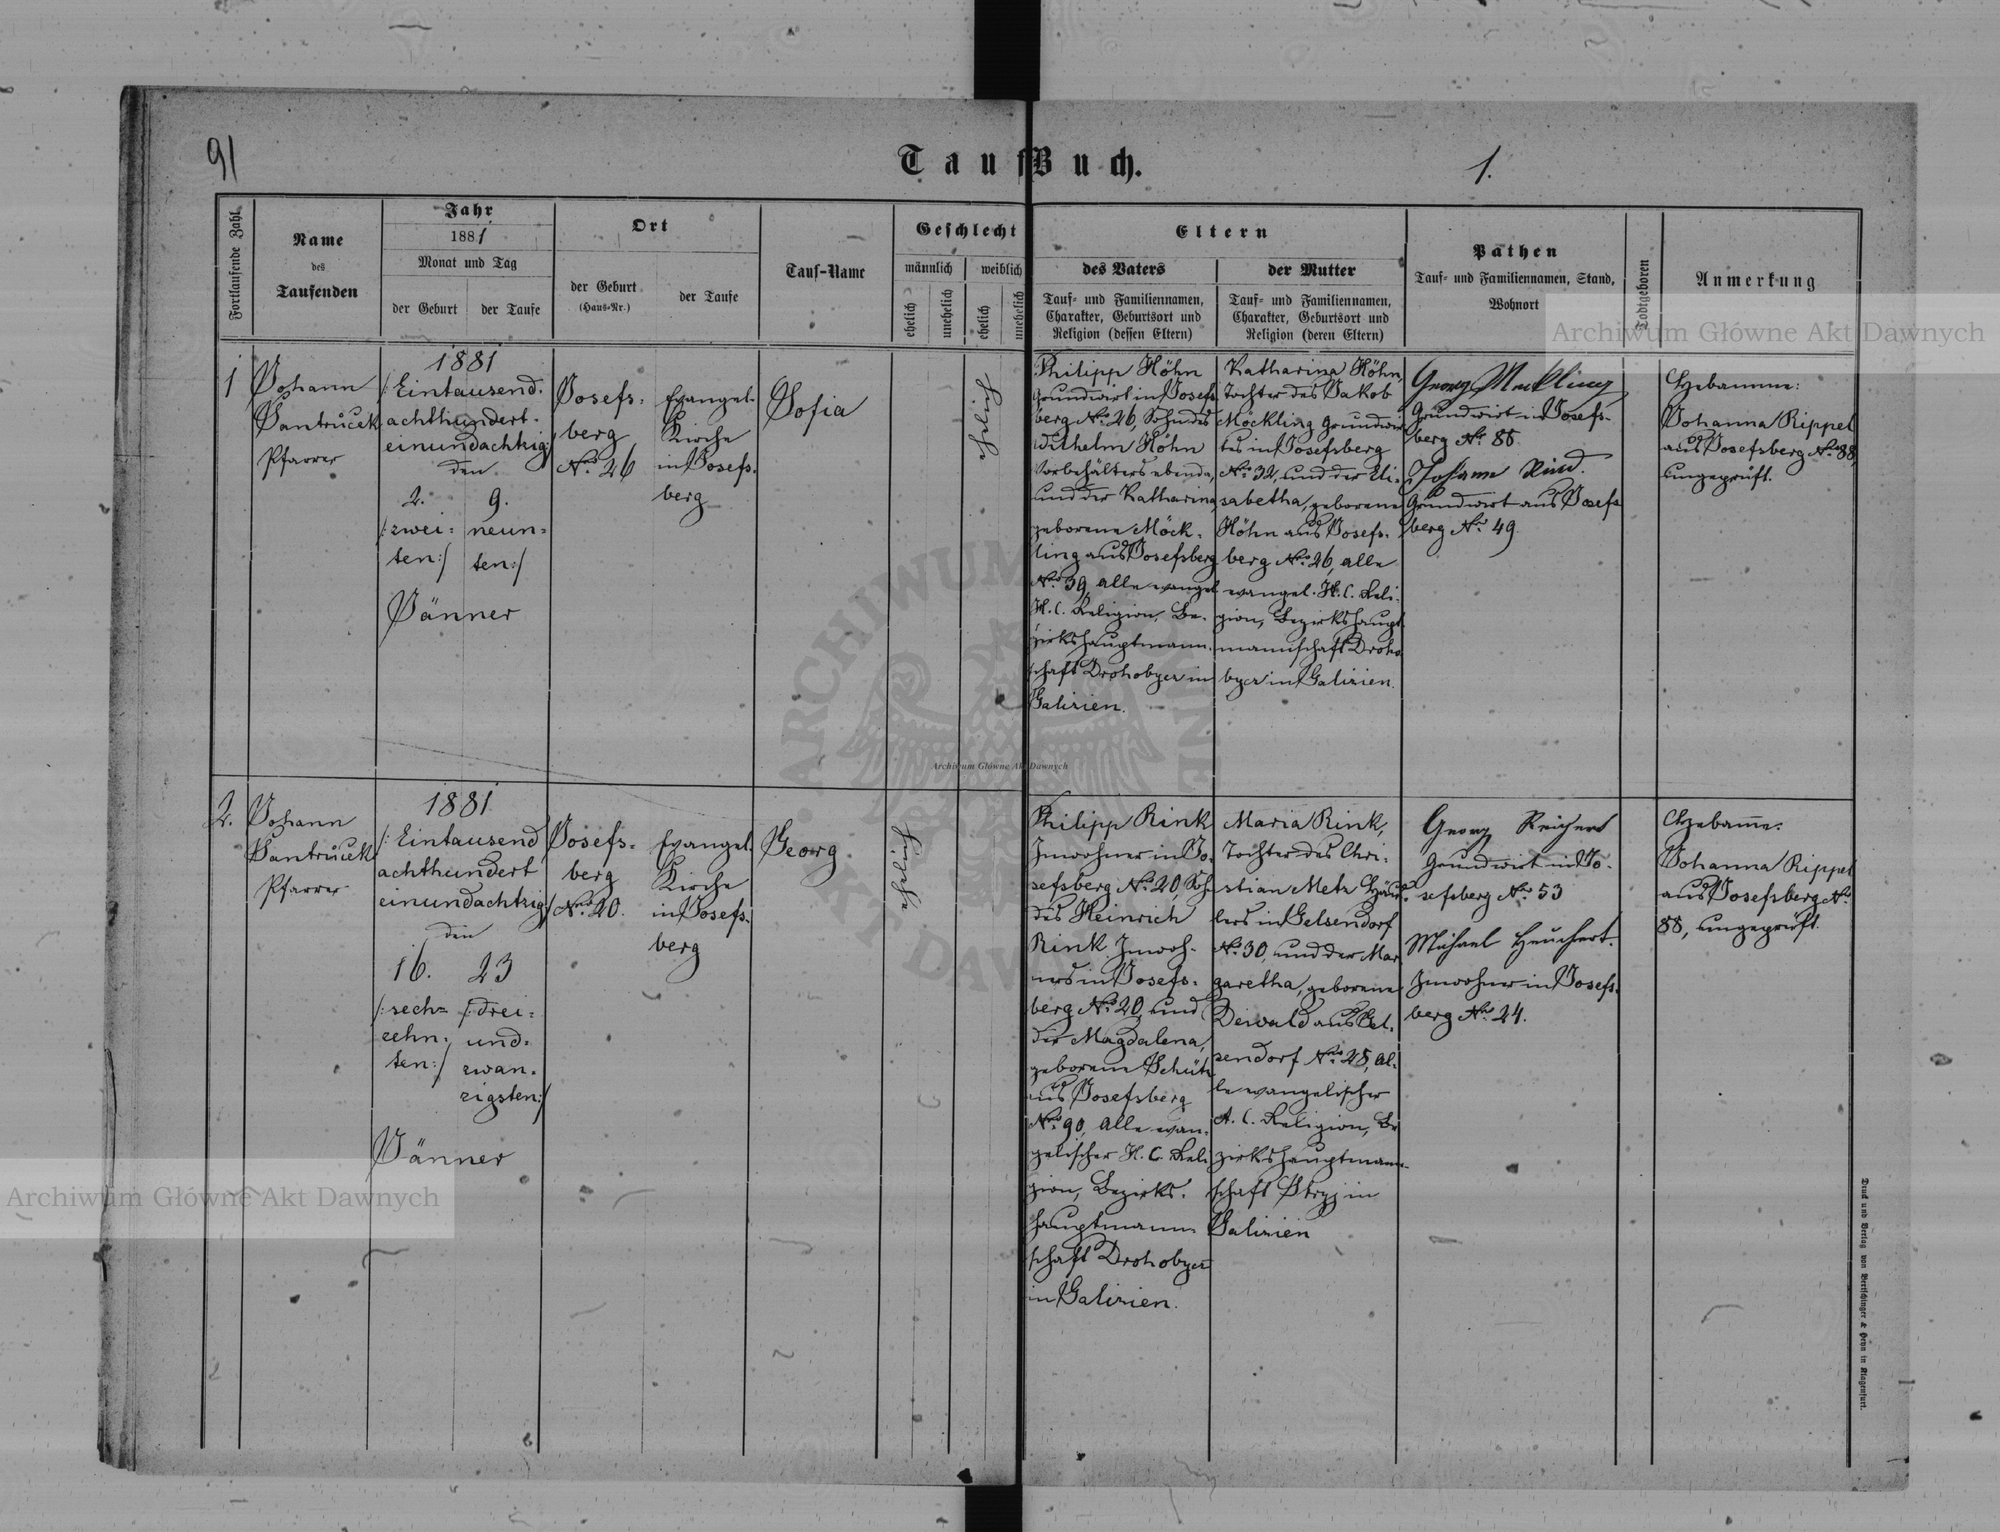 91
Tauf-Buch.
1.
Fortlaufende Zahl
Name
des
Taufenden
Jahr
1881
Monat und Tag
der Geburt
der Taufe
Ort
der Geburt
(Haus-Nr.)
der Taufe
Tauf-Name
Geschlecht
männlich
weiblich
ehelich
unehelich
ehelich
unehelich
Eltern
des Vaters
Tauf- und Familiennamen,
Charakter, Geburtsort und
Religion (dessen Eltern)
der Mutter
Tauf- und Familiennamen,
Charakter, Geburtsort und
Religion (deren Eltern)
Pathen
Tauf- und Familiennamen, Stand,
Wohnort
Todtgeboren
Anmerkung
1
Johann
Jantruček
Pfarrer
1881
/:Eintausend-
achthundert-
einundachtzig:/
den
2.
/:zwei=
ten:/
9.
neun=
ten:/
Jänner
Josefs=
berg
Nro 26
Evangel.
Kirche
in Josefs-
berg
Sofia
ehelich
Philipp Höhn
Grundwirt in Josefs-
berg Nro 26, Sohn des
Wilhelm Höhn
Vorbehälters ebenda,
und der Katharina
geborene Möck-
ling aus Josefsberg
Nro 39, alle evangel.
H. C. Religion, Be-
zirkshauptmann-
schaft Drohobycz in
Galizien.
Katharina Höhn,
Tochter des Jakob
Möckling Grundwir-
tes in Josefsberg
Nro 32, und der Eli-
sabetha, geborene
Höhn aus Josefs-
berg Nro 26, alle
evangel. H. C. Reli-
gion, Bezirkshaupt-
mannschaft Droho-
bycz in Galizien.
Georg Meckling
Grundwirt in Josefs-
berg Nro 85
Johann Rind.
Grundwirt aus Josefs-
berg Nro 49
Hebamme:
Johanna Rippel
aus Josefsberg Nro 88,
ungeprüft.
2.
Johann
Jantruček
Pfarrer
1881
/:Eintausend
achthundert
einundachtzig:/
den
16.
/:sech=
zehn-
ten:/
23
/:drei=
und=
zwan-
zigsten:/
Jänner
Josefs=
berg
Nro 20.
Evangel.
Kirche
in Josefs-
berg
Georg
ehelich
Philipp Rink
Inwohner in Jo-
sefsberg Nro 20, Soh.
des Heinrich
Rink Inwoh-
ners in Josefs-
berg Nro 20, und
der Magdalena,
geborene Schütz
aus Josefsberg
Nro 90, alle evan-
gelischer H. C. Reli-
gion, Bezirks-
hauptmann-
schaft Drohobycz
in Galizien.
Maria Rink,
Tochter des Chri-
stian Metz Häus-
lers in Gelsendorf
Nro 30, und der Mar-
garetha, geborene
Dewald aus Gel-
sendorf Nro 28, al-
le evangelischer
A. C. Religion, Be-
zirkshauptmann-
schaft Stryj in
Galizien
Georg Reichert
Grundwirt in Jo-
sefsberg Nro 53
Michael Heuchert.
Inwohner in Josefs-
berg Nro 24.
Hebam̅e:
Johanna Rippel
aus Josefsberg Nro
88, ungeprüft.
Druck und Verlag von Bertschinger & Heyn in Klagenfurt.
Archiwum Główne Akt Dawnych
Archiwum Główne Akt Dawnych
Archiwum Główne Akt Dawnych
ARCHIWUM GŁÓWNE AKT DAWNYCH